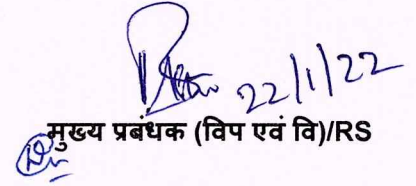 22/1/22
मुख्य प्रबंधक (विप एवं वि)/RS